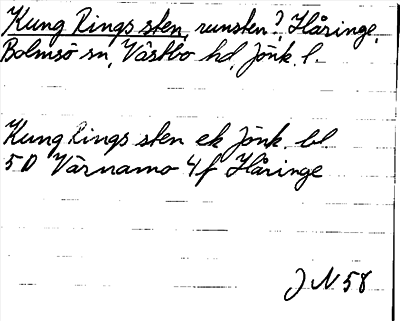 Kung Rings sten, runsten?, Håringe,
Bolmsö sn, Västbo hd, Jönk. l.
Kung Rings sten ek Jönk. bl
5D Värnamo 4f Håringe
JN 58